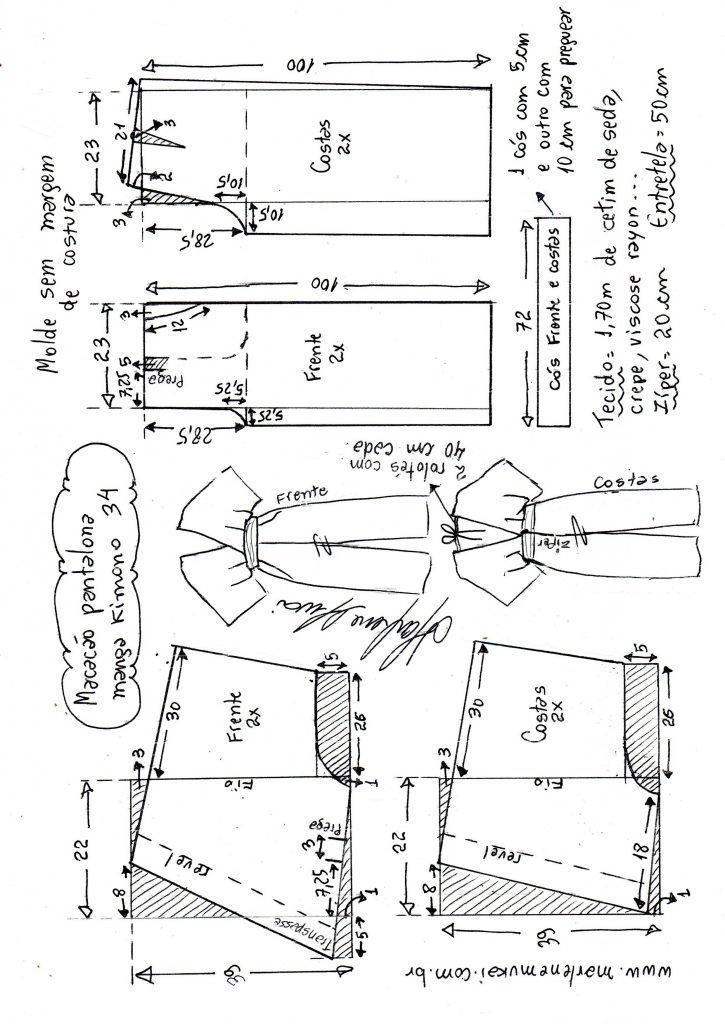 Macacão pantalona
manga Kimono 34
Molde sem margem
de costura
23
3
12
7,25
5
Prega
28,5
5,25
5,25
Frente
2x
100
23
21
3
3
2
28,5
10,5
10,5
Costas
2x
100
72
cós Frente e costas
1 cós com 5 cm
e outro com
10 cm para preguear
Tecido= 1,70m de cetim de seda,
crepe, viscose rayon...
Zíper= 20 cm Entretela= 50 cm
Frente
2 rolotês com
40 cm cada.
Costas
Zíper
22
8
3
30
Frente
2x
5
26
Fio
1
Prega
3
7,25
revel
Transpasse
5
1
39
22
8
3
30
Costas
2x
5
26
Fio
18
revel
1
39
www.marlenemukai.com.br